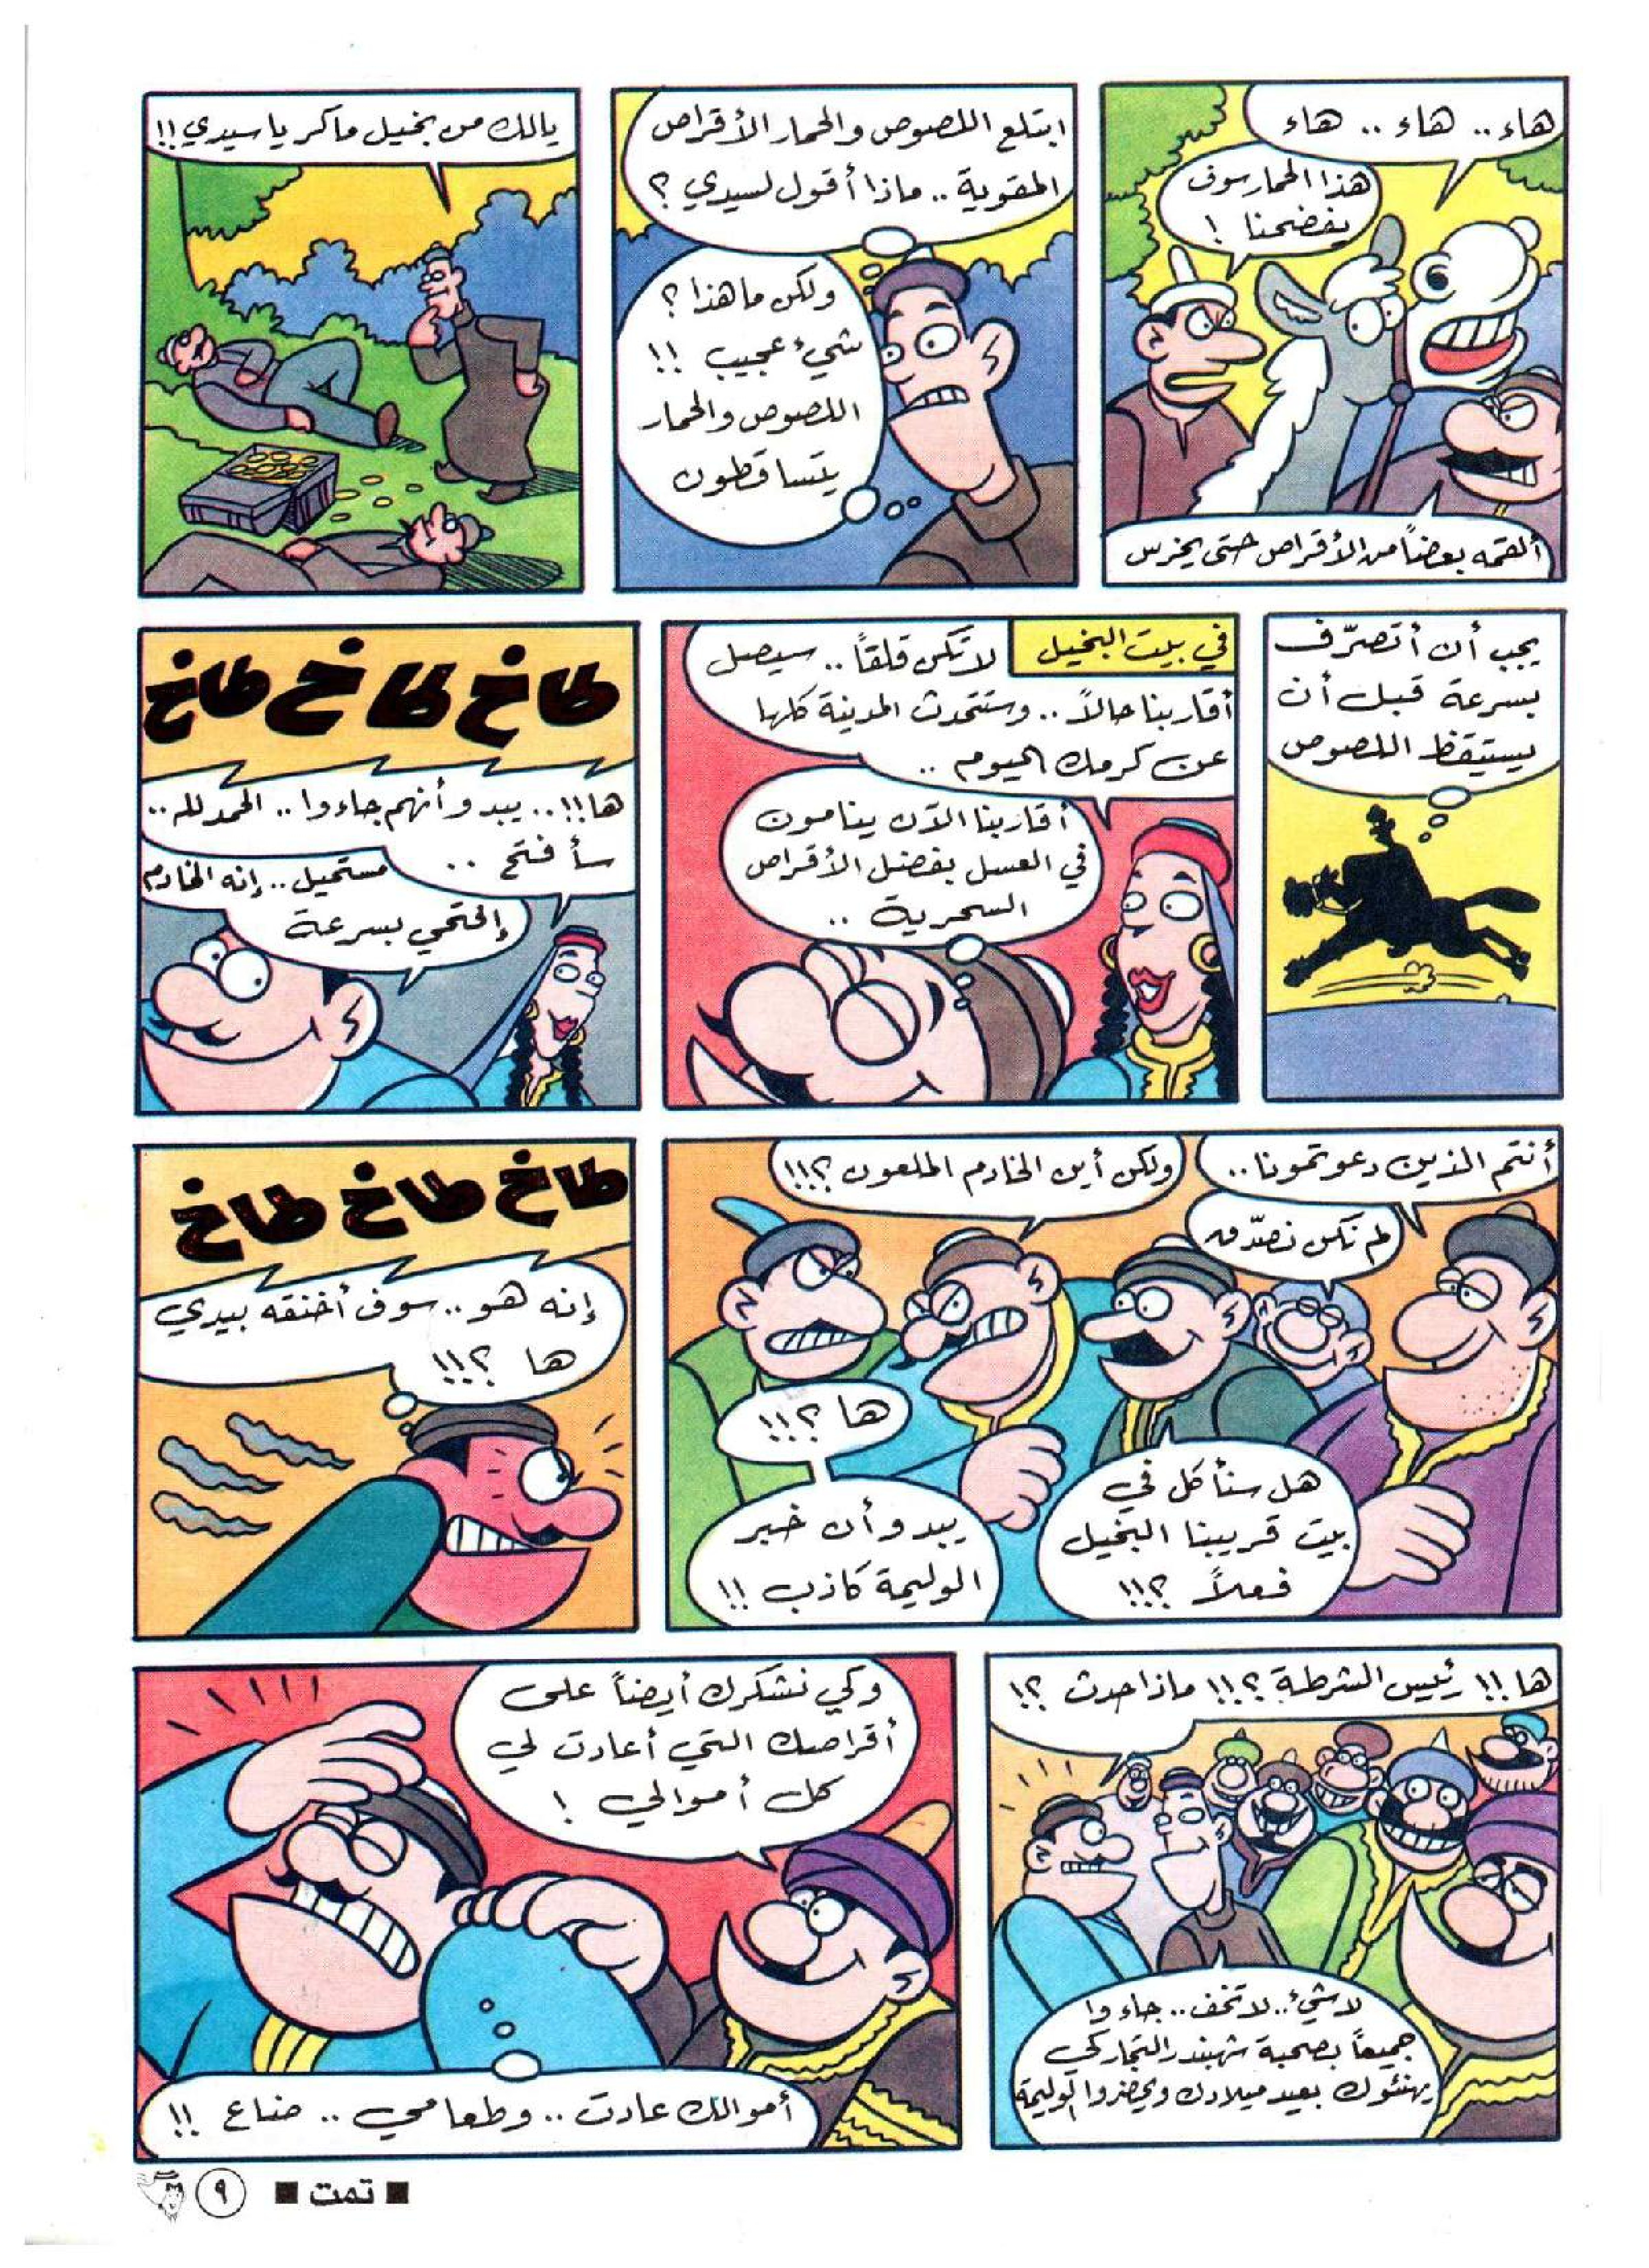 هاء.. هاء.. هاء
هذا الحمار سوف
يفضحنا !
ألقمه بعضاً من الأقراص حتى يخرس
ابتلع اللصوص والحمار الأقراص
المقوية.. ماذا أقول لسيدي ؟
ولكن ما هذا ؟
شيء عجيب !!
اللصوص والحمار
يتساقطون
يالك من بخيل ماكر يا سيدي !!
يجب أن أتصرّف
بسرعة قبل أن
يستيقظ اللصوص
في بيت البخيل
لا تكن قلقاً.. سيصل
أقاربنا حالاً.. وستتحدث المدينة كلها
عن كرمك اليوم..
أقاربنا الآن ينامون
في العسل بفضل الأقراص
السحرية..
طاخ طاخ طاخ
ها !!.. يبدو أنهم جاءوا.. الحمد لله..
سأفتح..
مستحيل.. إنه الخادم
إفتحي بسرعة
أنتم الذين دعوتمونا..
لم نكن نصدّق
ولكن أين الخادم الملعون ؟!!
هل سنأكل في
بيت قريبنا البخيل
فعلاً ؟!!
ها ؟!!
يبدو أن خبر
الوليمة كاذب !!
طاخ طاخ طاخ
إنه هو.. سوف أخنقه بيدي
ها ؟!!
ها !! رئيس الشرطة ؟!! ماذا حدث ؟!
لا شيء.. لا تخف.. جاءوا
جميعاً بصحبة شهبندر التجار كي
يهنئوك بعيد ميلادك ويحضروا الوليمة
وكي نشكرك أيضاً على
أقراصك التي أعادت لي
كل أموالي !
أموالك عادت.. وطعامي.. ضاع !!
■ تمت ■
٩